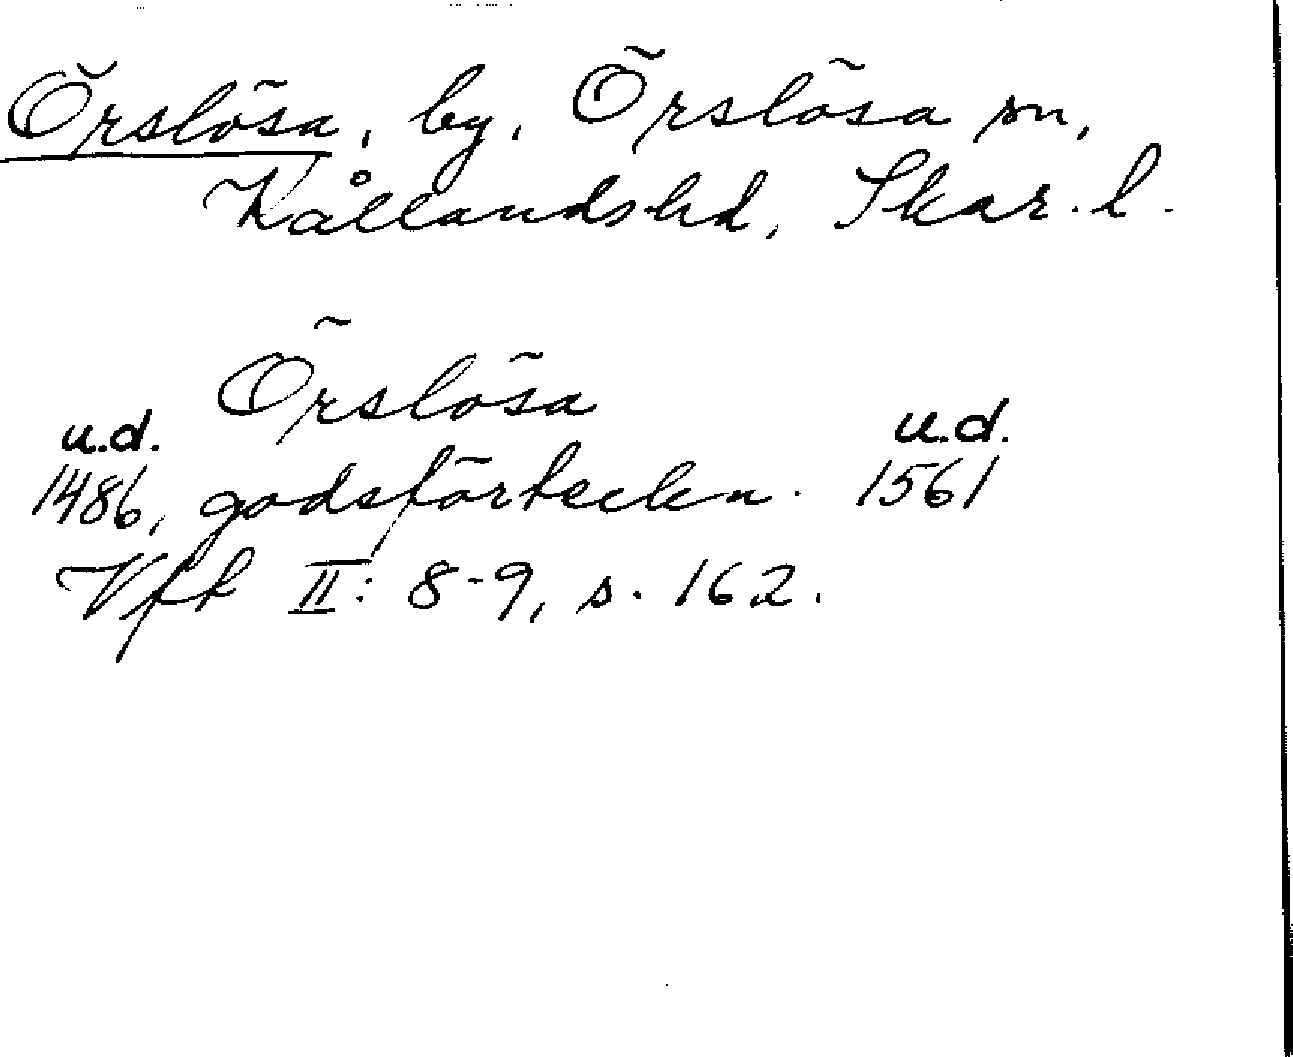 Örslösa, by, Örslösa sn,
Kållandshd, Skar. l.
Örslösa
u.d. u.d.
1486, godsförteckn. 1561
Vfk II: 8-9, s. 162.